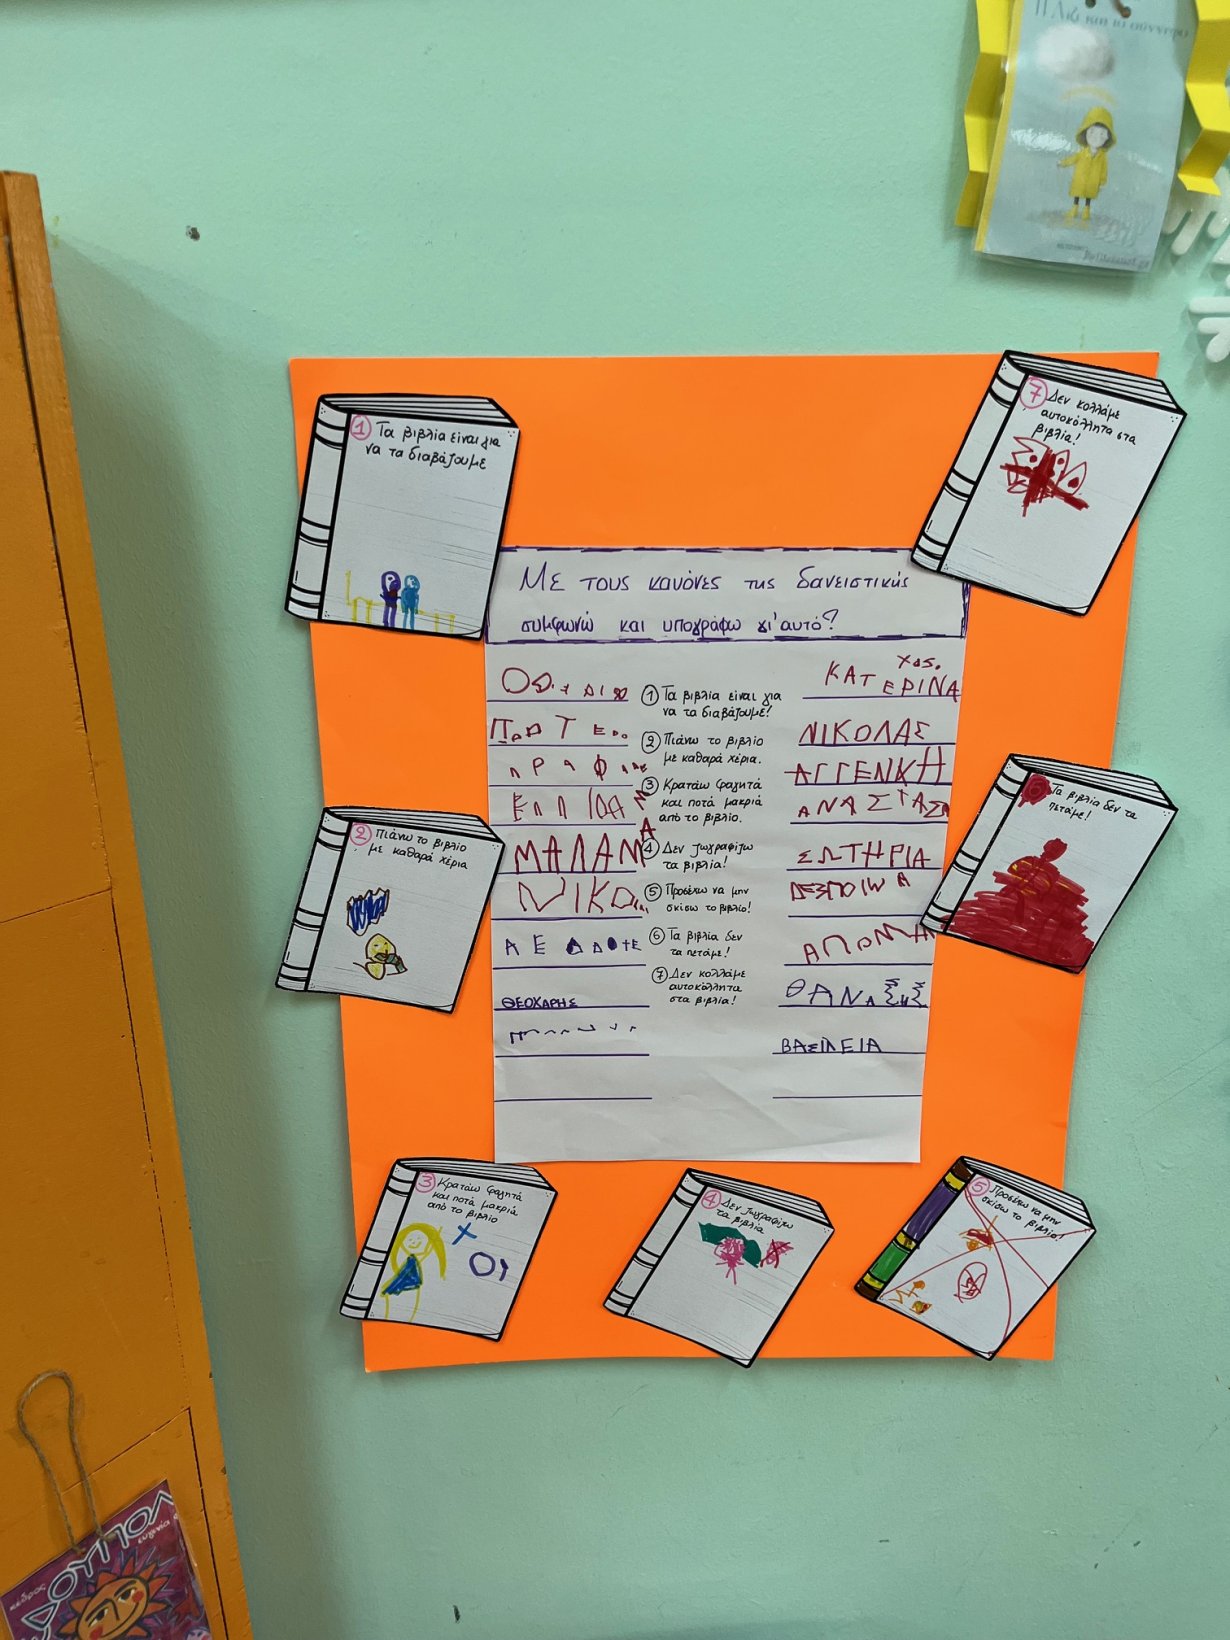 Πλώ και το σύννεφο
1 Τα βιβλία είναι για
να τα διαβάζουμε
7 Δεν κολλάμε
αυτοκόλλητα στα
βιβλία!
Με τους κανόνες της δανειστικής
συμφωνώ και υπογράφω γι' αυτό?
ΚΑΤΕΡΙΝΑ
Χας.
ΝΙΚΟΛΑΣ
ΑΓΓΕΝΚΗ
ΑΝΑΣΤΑΣΑ
ΣΩΤΗΡΙΑ
ΔΕΣΠΟΙΝΑ
ΒΑΣΙΛΕΙΑ
ΜΑΛΑΜΑ
ΝΙΚΟ
ΘΕΟΧΑΡΗΣ
1 Τα βιβλία είναι για
να τα διαβάζουμε!
2 Πιάνω το βιβλίο
με καθαρά χέρια.
3 Κρατάω φαγητά
και ποτά μακριά
από το βιβλίο.
4 Δεν ζωγραφίζω
τα βιβλία!
5 Προσέχω να μην
σκίσω το βιβλίο!
6 Τα βιβλία δεν
τα πετάμε!
7 Δεν κολλάμε
αυτοκόλλητα
στα βιβλία!
2 Πιάνω το βιβλίο
με καθαρά χέρια
6 Τα βιβλία δεν τα
πετάμε!
3 Κρατάω φαγητά
και ποτά μακριά
από το βιβλίο
4 Δεν ζωγραφίζω
τα βιβλία
5 Προσέχω να μην
σκίσω το βιβλίο!
κέδρος
ευγενία